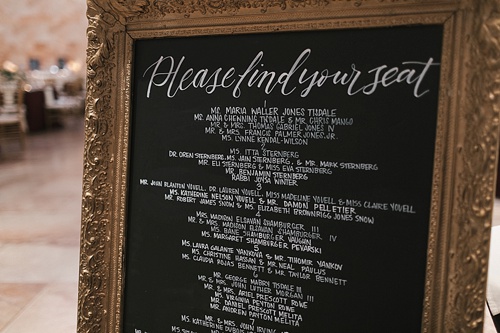 Please find your seat
1
MS. MARIA WALLER JONES TISDALE
MS. ANNA CHENNING TISDALE & MR CHRIS MANGO
MR. & MRS. THOMAS GABRIEL JONES IV
MR. & MRS. FRANCIS PALMER JONES, JR.
MS. LYNNE KENDAL-WILSON
2
MS. ITTA STERNBERG
DR. OREN STERNBERG, MS. JAIN STERNBERG, & MR. MARK STERNBERG
MR. ELI STERNBERG & MISS EVA STERNBERG
MR. BENJAMIN STERNBERG
RABBI JOYSA WINTER
3
MR. JOHN BLANTON YOVELL, DR. LAUREN YOVELL, MISS MADELINE YOVELL & MISS CLAIRE YOVELL
MS. KATHERINE NELSON YOVELL & MR. DAMON PELLETIER
MR. ROBERT JAMES SNOW & MS. ELIZABETH BROWNRIGG JONES SNOW
4
MRS. MADISON ELAVAN SHAMBURGER III
MR & MRS. MADISON ELAVAN SHAMBURGER IV
MS. BANE SHAMBURGER VAUGHN
MS. MARGARET SHAMBURGER PEVARSKI
5
MS. LAURA GALANTE YANKOVA & MR. TIHOMIR YANKOV
MS. CHRISTINE HASSAN & MR. NEAL PAULUS
MS. CLAUDIA ROJAS BENNETT & MR. TAYLOR BENNETT
6
MR. GEORGE MABRY TISDALE III
MR. & MRS. JOHN LUTHER MORGAN III
MR. & MRS. ARIEL PRESCOTT ROWE
MS. VIRGINIA PEYTON ROWE
MR. DANIEL PRESCOTT MELITA
MR. ANDREW PAYTON MELITA
MR. & MRS. JOHN
MS. KATHERINE